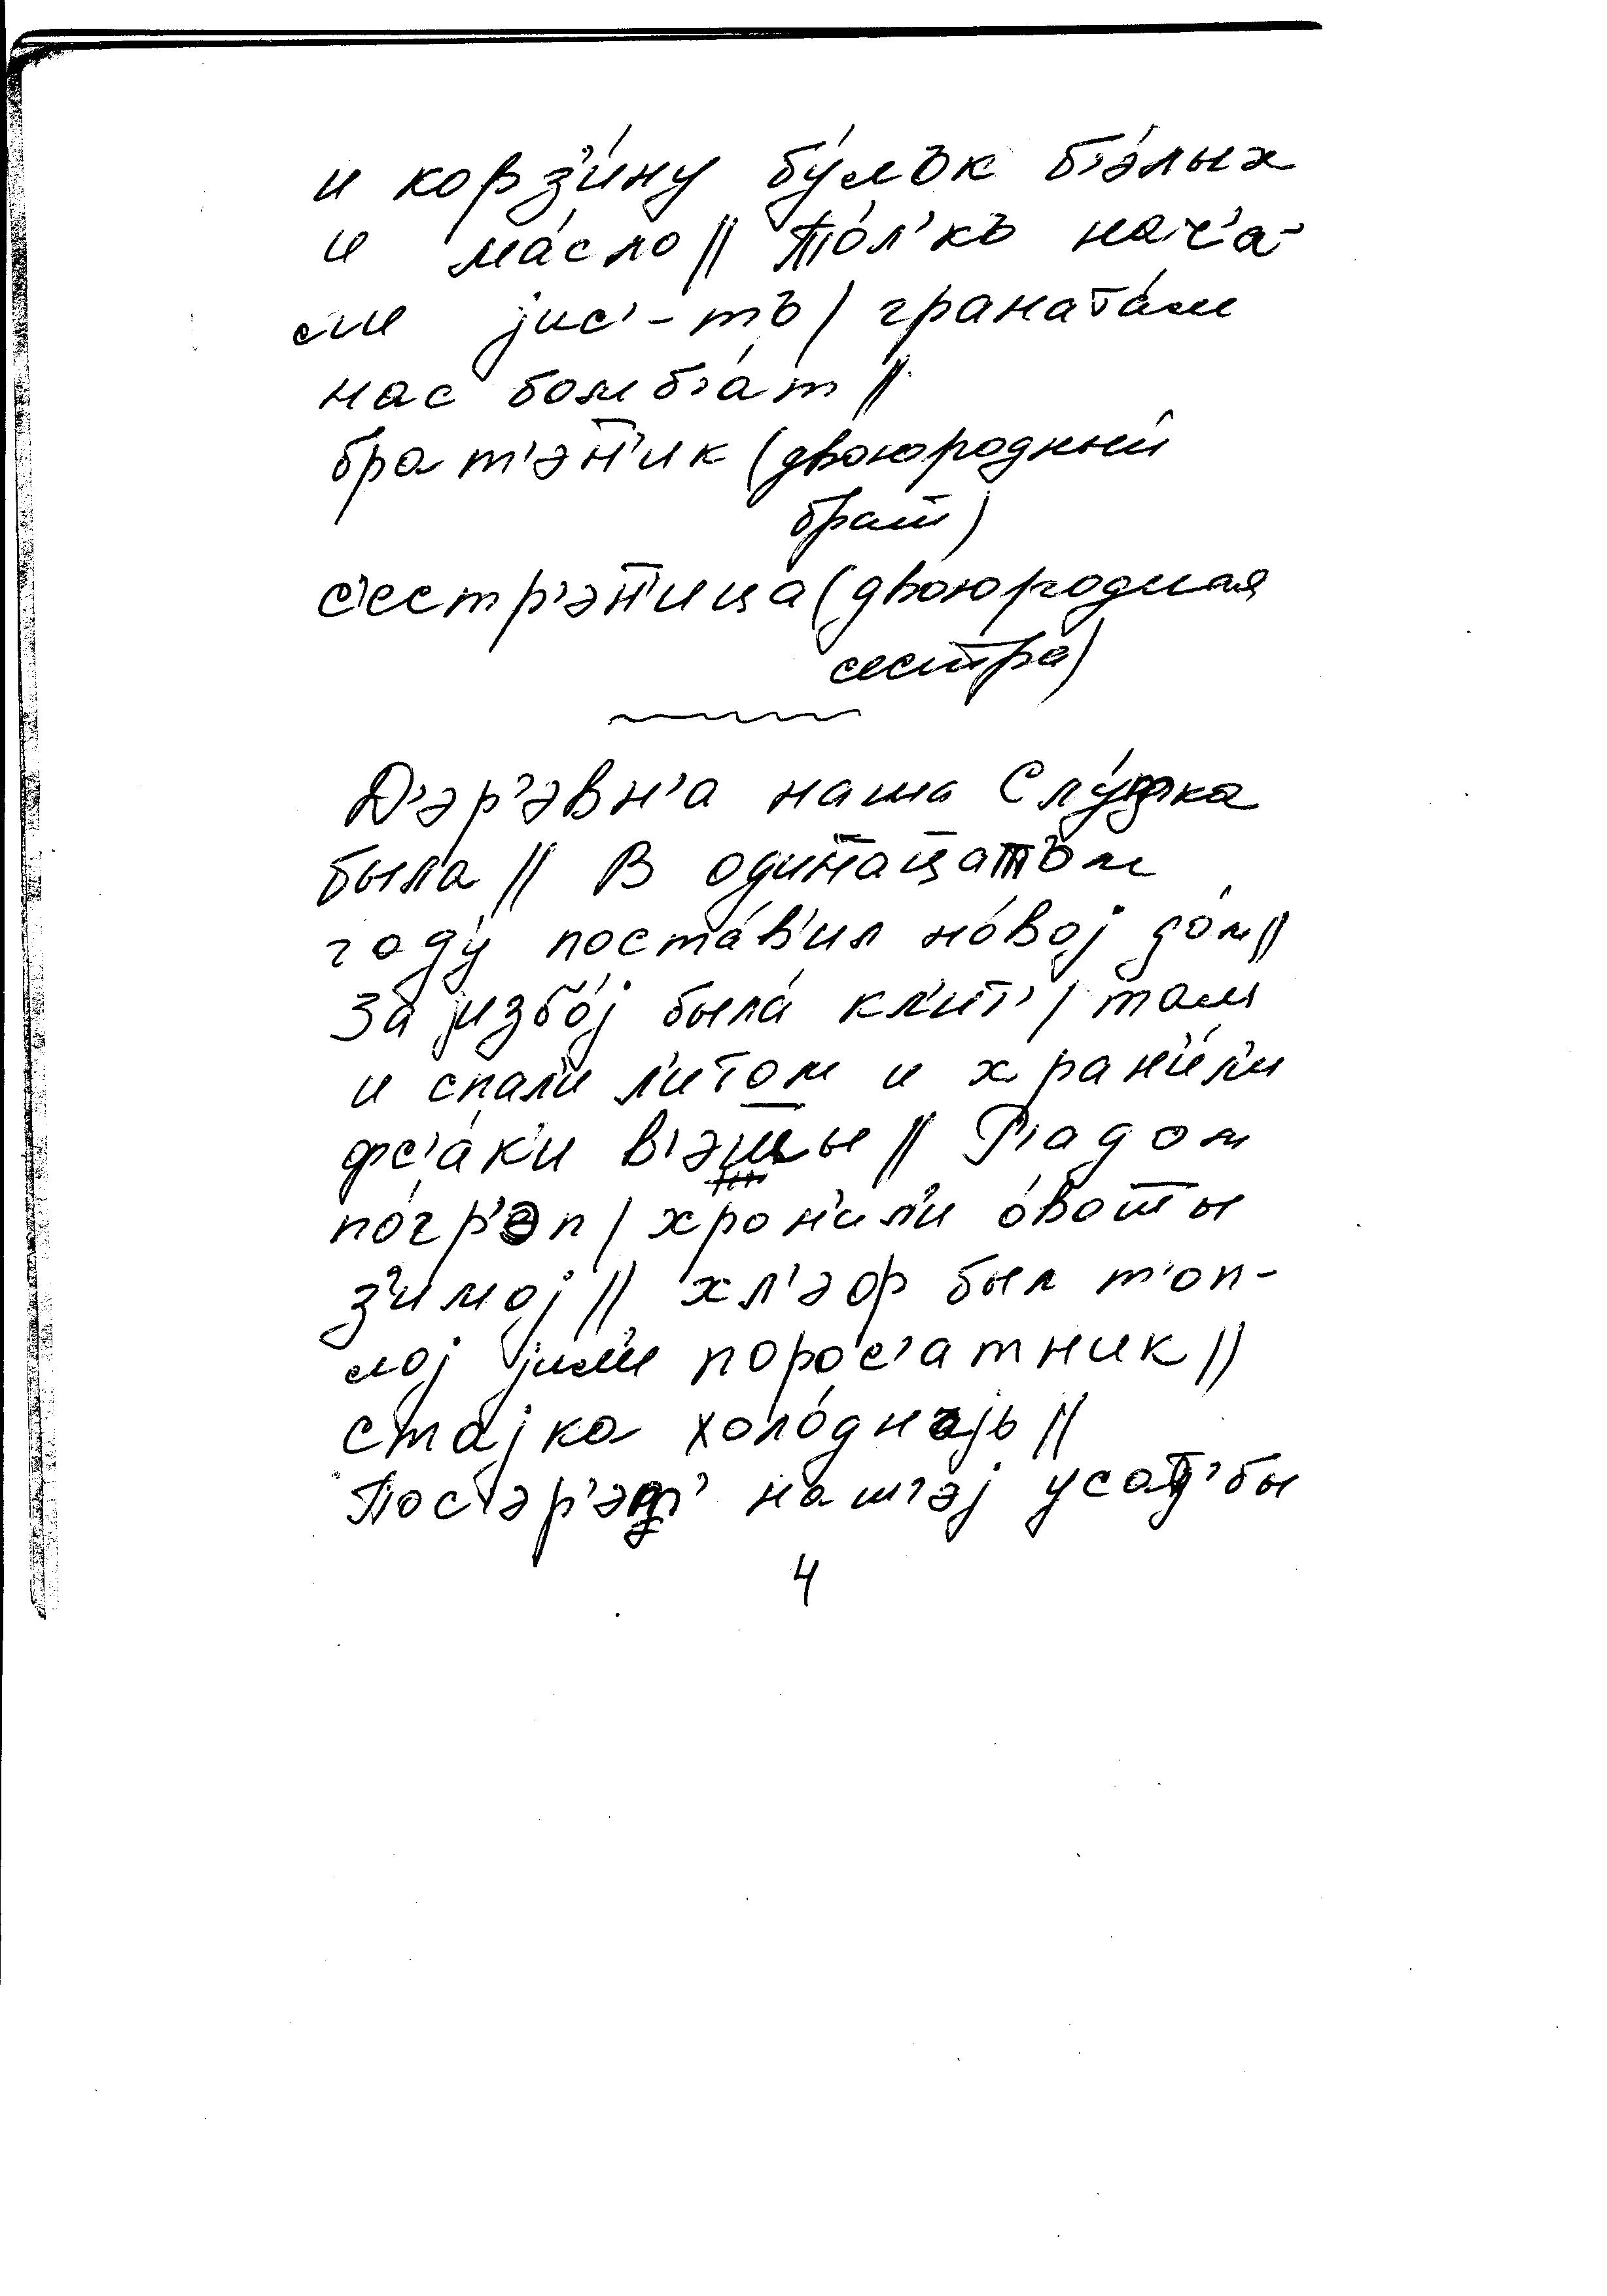 и корз'и́ну бу́лък б'э́лых
и ма́сло // То́л'къ нач'а-
ли јис'-тъ / граната́м
нас бомб'а́т //
брат'э̄н'ик (двоюродный
брат)
с'естр'э̄н'ица (двоюродная
сестра)
Д'эр'эвн'а наша Слу́тка
была // В один̄ац̄атъм
году́ поста́в'ил но́вој до́м //
За јизбо́ј была́ кл'ит' / там
и спал'и л'итом и хран'и́л'и
фс'а́к'и в'эш̄ы // Р'адом
по́гр'эп / хрон'ил'и о́вош̄ы
з'имој // хл'эф был т'оп-
лој јим'и порос'атник //
стајка холо́днајь //
Пос'эр'эд' наш'эј усад'бы
4